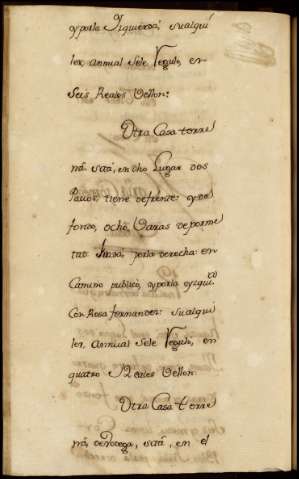 y porla Izquierda, sualqui
ler, annual Sele Regulo, en
Seis Reales Vellon:
Otra Casa terre
na, sita, en dho Lugar dos
tiene defrente: y de
fondo, ocho, Varas, deporme
tad: linda, porla derecha: en
Camino publico, y porla yzqui.da
Con Rosa fernandez: sualqui
ler, annual Sele Regulo, en
quatro Reales Vellon:
Otra Casa terre
na, deVodega, sita, en el